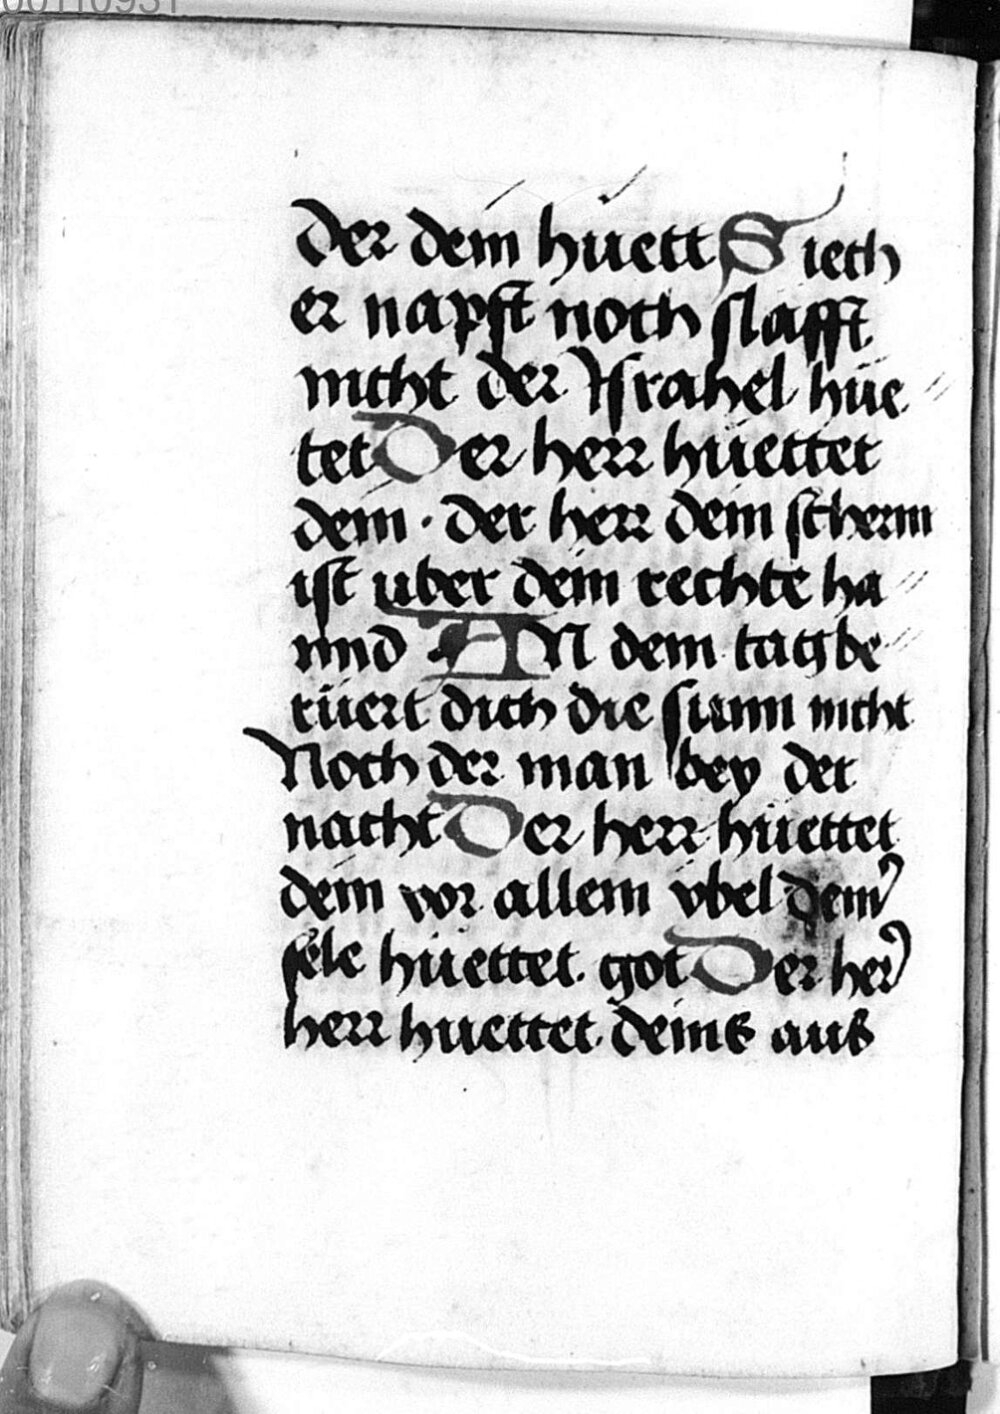 00110931
Der dein hüett Siech
er napfft noch slafft
nicht der Jsrahel hüe
tet Der herr hüettet
dein · der herr dein scherm
ist uber dein rechte ha
nnd AN dem tag be
rüert dich die sunn nicht
Noch der man bey der
nacht Der herr hüettet
dein vor allem vbel deinʾ
sele hüettet got Der herʾ
herr huettet deins aus